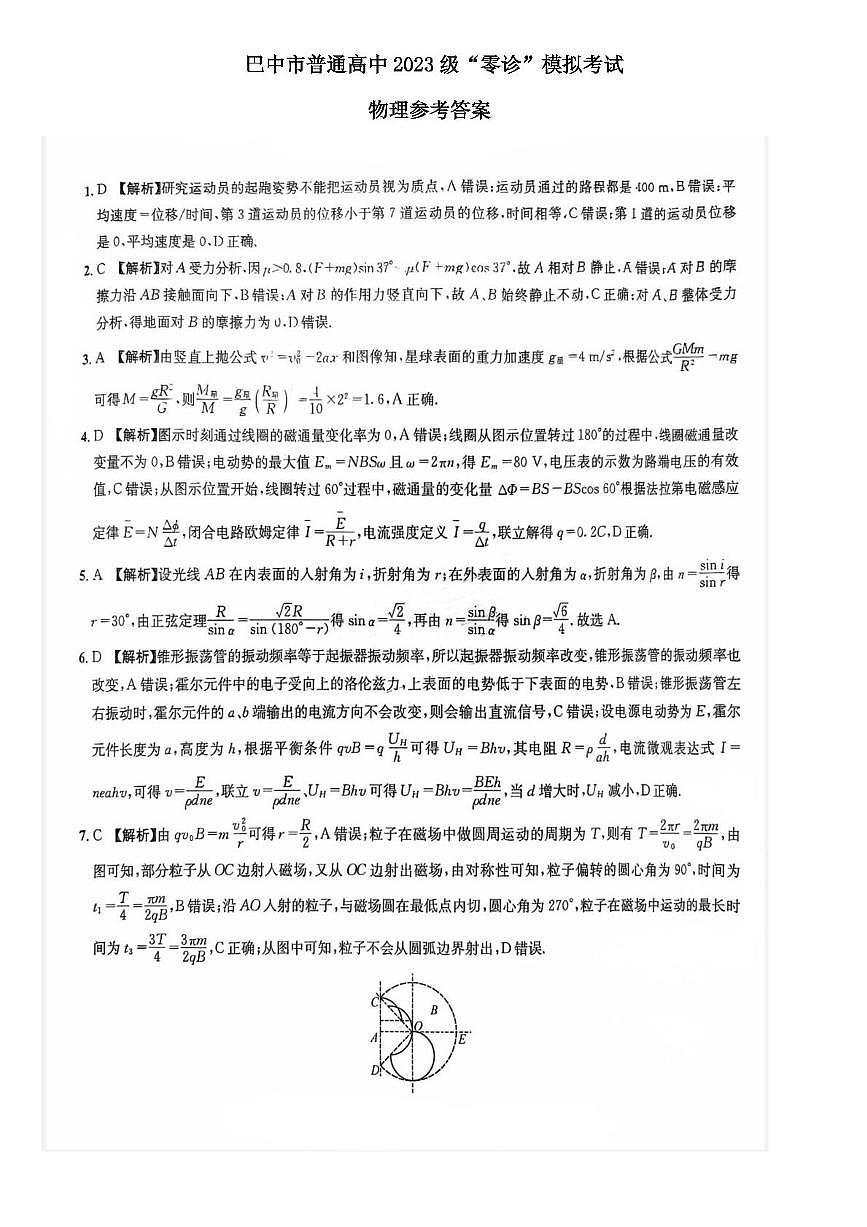 巴中市普通高中 2023 级“零诊”模拟考试
物理参考答案
1. D 【解析】研究运动员的起跑姿势不能把运动员视为质点,A 错误;运动员通过的路程都是 400 m,B 错误;平
均速度=位移/时间、第 3 道运动员的位移小于第 7 道运动员的位移,时间相等,C 错误;第 1 道的运动员位移
是 0、平均速度是 0,D 正确.
2. C 【解析】对 A 受力分析,因 μ>0.8,(F+mg)sin 37° μ(F+mg)cos 37°,故 A 相对 B 静止,A 错误;A 对 B 的摩
擦力沿 AB 接触面向下,B 错误;A 对 B 的作用力竖直向下,故 A、B 始终静止不动,C 正确;对 A、B 整体受力
分析,得地面对 B 的摩擦力为 0,D 错误.
3. A 【解析】由竖直上抛公式 v²=v₀²-2ax 和图像知,星球表面的重力加速度 g星=4 m/s²,根据公式 GMm/R²=mg
可得 M=gR²/G,则 M星/M=g星/g(R星/R)²=4/10×2²=1.6,A 正确.
4. D 【解析】图示时刻通过线圈的磁通量变化率为 0,A 错误;线圈从图示位置转过 180°的过程中,线圈磁通量改
变量不为 0,B 错误;电动势的最大值 Eₘ=NBSω 且 ω=2πn,得 Eₘ=80 V,电压表的示数为路端电压的有效
值,C 错误;从图示位置开始,线圈转过 60°过程中,磁通量的变化量 ΔΦ=BS-BScos 60°根据法拉第电磁感应
定律 E̅=N Δϕ/Δt,闭合电路欧姆定律 I̅=E̅/(R+r),电流强度定义 I̅=q/Δt,联立解得 q=0.2C,D 正确.
5. A 【解析】设光线 AB 在内表面的入射角为 i,折射角为 r;在外表面的入射角为 α,折射角为 β,由 n=sin i/sin r 得
r=30°,由正弦定理 R/sin α=√2R/sin (180°-r) 得 sin α=√2/4,再由 n=sin β/sin α 得 sin β=√6/4.故选 A.
6. D 【解析】锥形振荡管的振动频率等于起振器振动频率,所以起振器振动频率改变,锥形振荡管的振动频率也
改变,A 错误;霍尔元件中的电子受向上的洛伦兹力,上表面的电势低于下表面的电势,B 错误;锥形振荡管左
右振动时,霍尔元件的 a、b 端输出的电流方向不会改变,则会输出直流信号,C 错误;设电源电动势为 E,霍尔
元件长度为 a,高度为 h,根据平衡条件 qvB=q U_H/h 可得 U_H=Bhv,其电阻 R=ρ d/ah,电流微观表达式 I=
neahv,可得 v=E/ρdne,联立 v=E/ρdne、U_H=Bhv 可得 U_H=Bhv=BEh/ρdne,当 d 增大时,U_H 减小,D 正确.
7. C 【解析】由 qv₀B=m v₀²/r 可得 r=R/2,A 错误;粒子在磁场中做圆周运动的周期为 T,则有 T=2πr/v₀=2πm/qB,由
图可知,部分粒子从 OC 边射入磁场,又从 OC 边射出磁场,由对称性可知,粒子偏转的圆心角为 90°,时间为
t₁=T/4=πm/2qB,B 错误;沿 AO 入射的粒子,与磁场圆在最低点内切,圆心角为 270°,粒子在磁场中运动的最长时
间为 t₃=3T/4=3πm/2qB,C 正确;从图中可知,粒子不会从圆弧边界射出,D 错误.
C
B
O
A
E
D